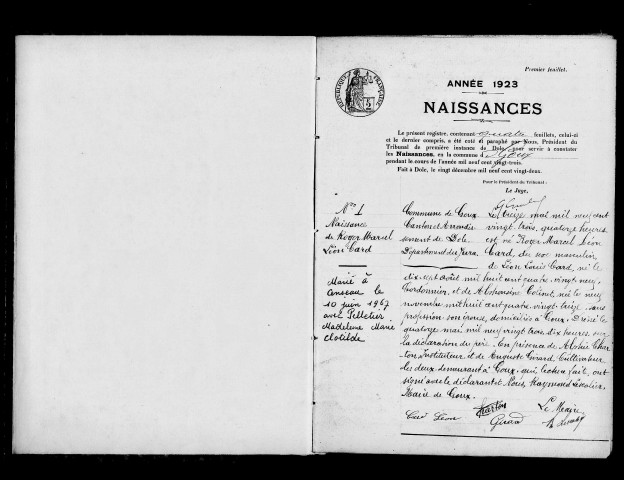 Premier feuillet.
RÉPUBLIQUE FRANÇAISE
ANNÉE 1923
NAISSANCES
Le présent registre, contenant quatre feuillets, celui-ci
et le dernier compris, a été coté et paraphé par Nous, Président du
Tribunal de première instance de Dole, pour servir à constater
les Naissances, en la commune de Goux
pendant le cours de l'année mil neuf cent vingt-trois.
Fait à Dole, le vingt décembre mil neuf cent vingt-deux.
Pour le Président du Tribunal :
Le Juge,
N° 1
Naissance
de Roger Marcel
Léon Card
Marié à
le
10 juin 1967
avec Pelletier
Madeleine Marie
Clotilde
Commune de Goux
Canton et Arrondis
sement de Dole
Département du Jura
Le treize mai mil neuf cent
vingt trois, quatorze heures
est né Roger Marcel Léon
Card, du sexe masculin,
de Léon Louis Card, né le
dix sept août mil huit cent quatre vingt neuf,
Cordonnier, et de Alphonsine , née le neuf
novembre mil huit cent quatre vingt treize, sans
profession son épouse, domiciliés à Goux. Dressé le
quatorze mai mil neuf vingt trois dix heures sur
la déclaration du père. En présence de Char
ton Instituteur et de Auguste Girard Cultivateur
les deux demeurant à Goux, qui, lecture faite, ont
signé avec le déclarant et Nous Raymond
Maire de Goux.
Card Léon
Charton
Girard
Le Maire